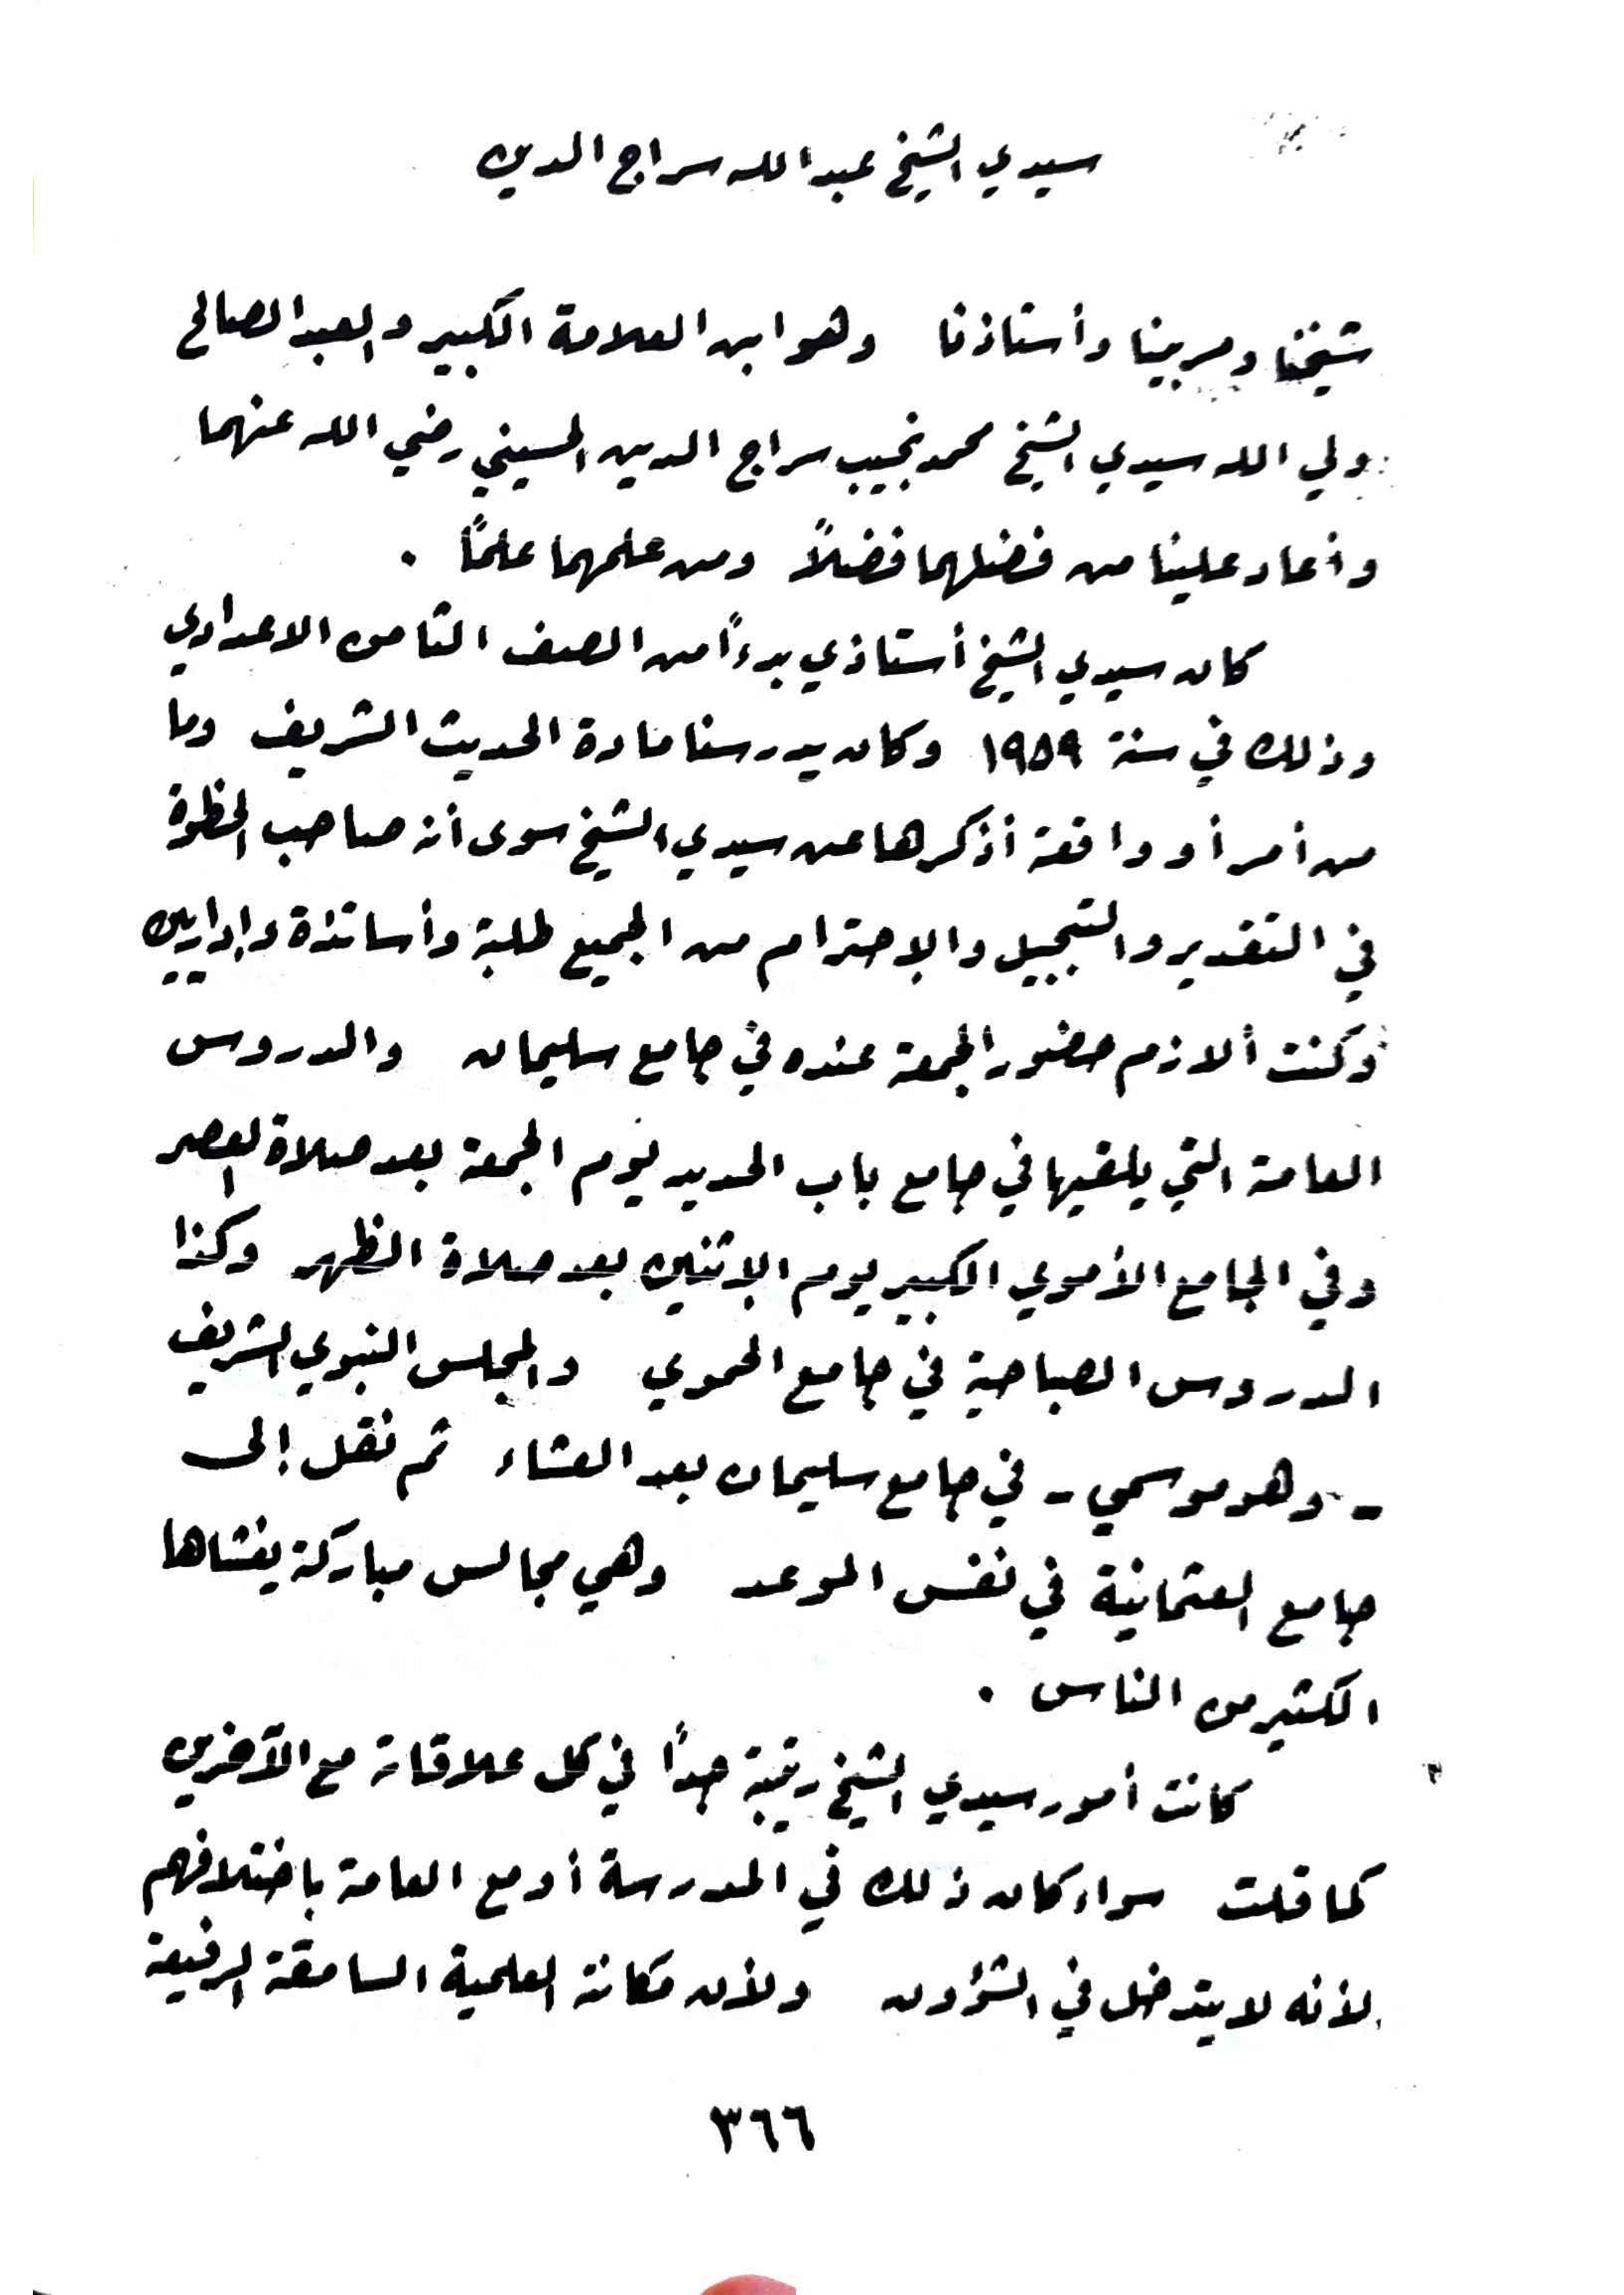 سيدي الشيخ عبد الله سراج الدين
شيخنا ومربينا وأستاذنا وهو ابن العلامة الكبير والعبد الصالح
ولي الله سيدي الشيخ محمد نجيب سراج الدين الحسيني رضي الله عنهما
وأعاد علينا من فضلهما فضلاً ومن علمهما علماً .
كان سيدي الشيخ أستاذي بدءاً من الصف الثامن الاعدادي
وذلك في سنة ١٩٥٩ وكان يدرسنا مادة الحديث الشريف وما
من أمر أو واقعة أذكرها عن سيدي الشيخ سوى أنه صاحب الحظوة
في التقدير والتبجيل والاحترام من الجميع طلبة وأساتذة وإداريين
وكنت ألازم حضور الجمعة عنده في جامع سليمان والدروس
العامة التي يلقيها في جامع باب الحديد يوم الجمعة بعد صلاة العصر
وفي الجامع الأموي الكبير يوم الاثنين بعد صلاة الظهر وكذا
الدروس الصباحية في جامع الحموي والمجلس النبوي الشريف
- وهو موسمي - في جامع سليمان بعد العشاء ثم نقل إلى
جامع العثمانية في نفس الموعد وهي مجالس مباركة يغشاها
الكثير من الناس .
كانت أمور سيدي الشيخ رتيبة جداً في كل علاقاته مع الآخرين
كما قلت سواء كان ذلك في المدرسة أو مع العامة باختلافهم
لأنه لا يتدخل في الشؤون ولأن مكانته العلمية السامقة الرفيعة
٣٦٦